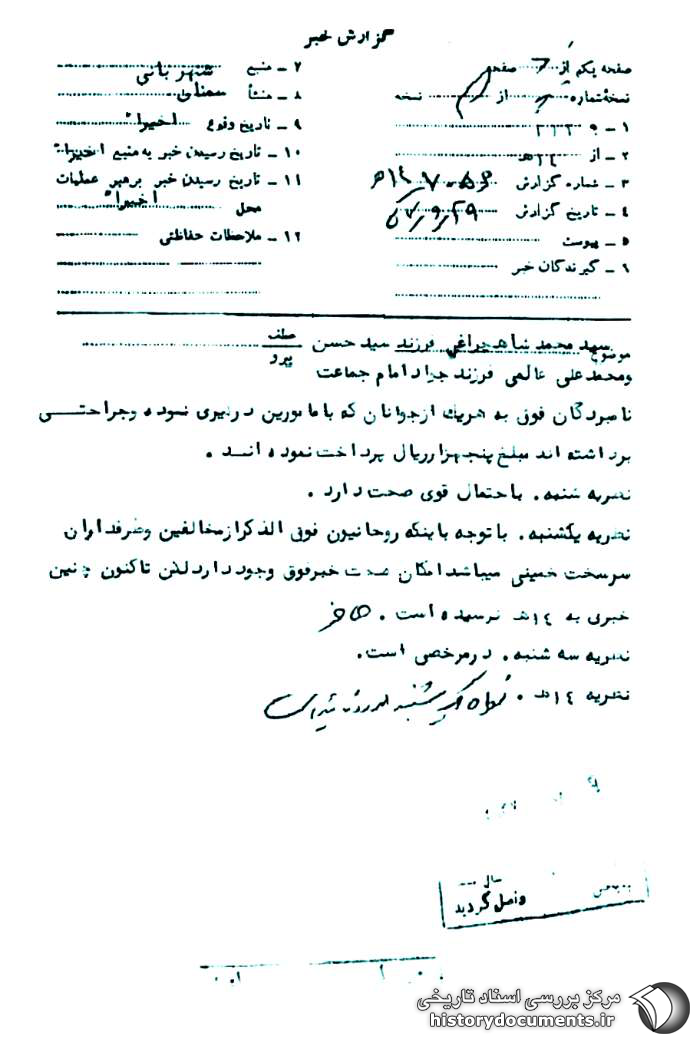 گزارش خبر
صفحه یکم از صفحه
نسخه شماره از نسخه
۱ ـ به ۳۳۳
۲ ـ از ۱۴هـ
۳ ـ شماره گزارش
۴ ـ تاریخ گزارش ۵۷٫۹٫۲۹
۵ ـ پیوست
۶ ـ گیرندگان خبر
۷ ـ منبع شهربانی
۸ ـ منشأ
۹ ـ تاریخ وقوع اخیرا"
۱۰ ـ تاریخ رسیدن خبر به منبع اخیرا"
۱۱ ـ تاریخ رسیدن خبر برهبر عملیات
محل اخیرا"
۱۲ ـ ملاحظات حفاظتی
موضوع سید محمد شاهچراغی فرزند سید حسن عطف
پیرو
ومحمد علی عالمی فرزند جواد امام جماعت
نامبردگان فوق به هریک ازجوانان که بامامورین درگیری نموده وجراحتی
برداشته اند مبلغ پنجهزارریال پرداخت نموده اند .
نظریه شنبه . باحتمال قوی صحت دارد .
نظریه یکشنبه . باتوجه باینکه روحانیون فوق الذکر ازمخالفین وطرفداران
سرسخت خمینی میباشد امکان صحت خبرفوق وجود دارد لکن تاکنون چنین
خبری به ۱۴هـ نرسیده است .
نظریه سه شنبه . درمرخصی است .
نظریه ۱۴هـ .
سال
واصل گردید
مرکز بررسی اسناد تاریخی
historydocuments.ir